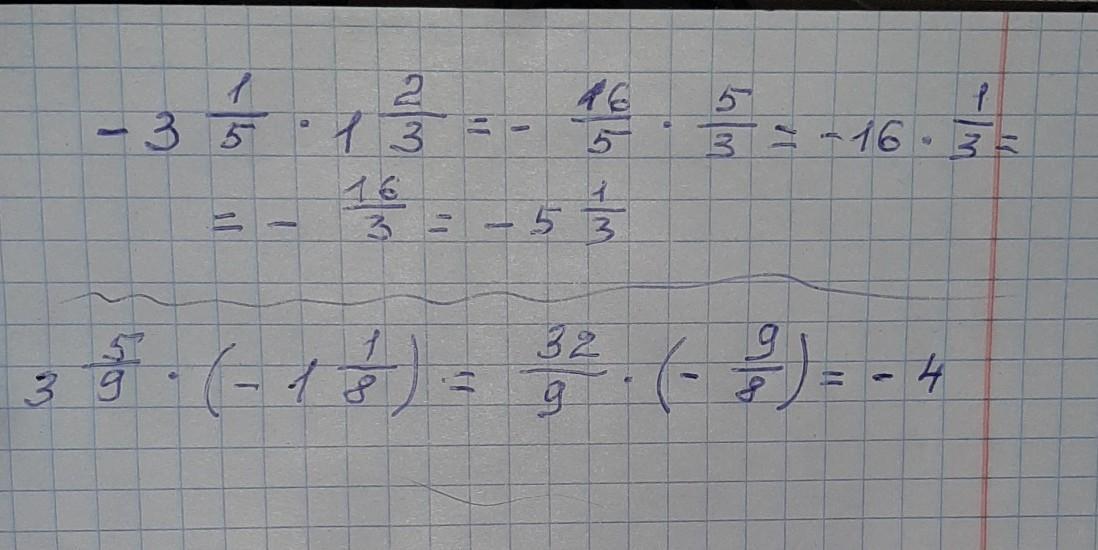 -3 1/5 · 1 2/3 = - 16/5 · 5/3 = -16 · 1/3 =
= - 16/3 = -5 1/3
3 5/9 · (-1 1/8) = 32/9 · (- 9/8) = -4